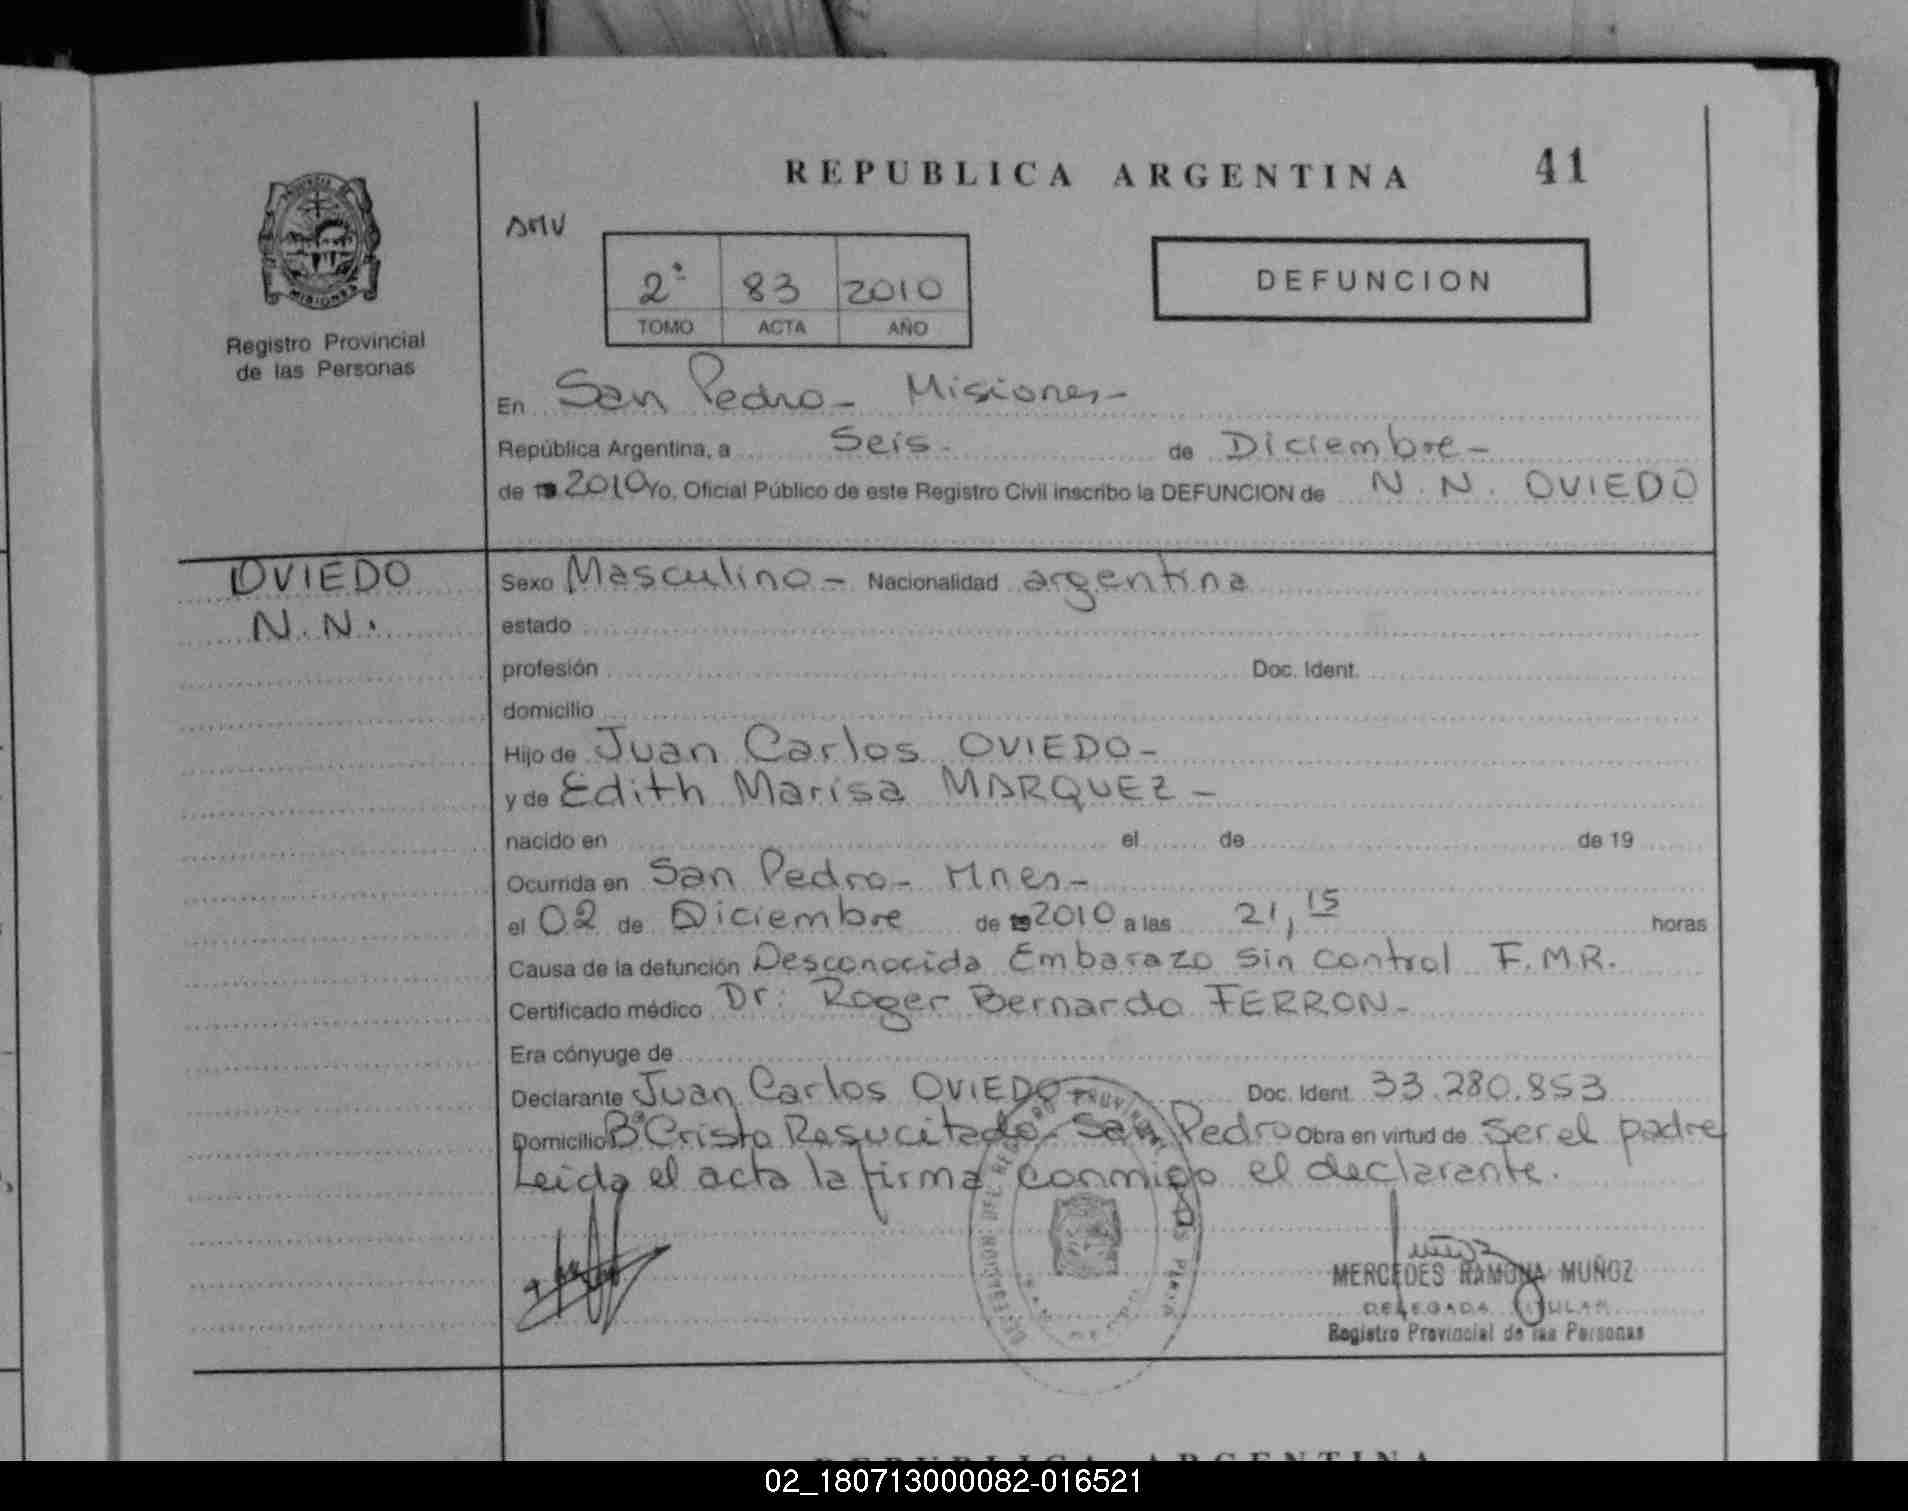 REPUBLICA ARGENTINA 41
PROVINCIA DE
MISIONES
Registro Provincial
de las Personas
SMV
2° 83 2010
TOMO ACTA AÑO
DEFUNCION
En San Pedro - Misiones -
República Argentina, a Seis - de Diciembre -
de 2010 Yo, Oficial Público de este Registro Civil inscribo la DEFUNCION de N. N. OVIEDO
OVIEDO
N. N.
Sexo Masculino - Nacionalidad argentina
estado
profesión Doc. Ident.
domicilio
Hijo de Juan Carlos OVIEDO -
y de Edith Marisa MARQUEZ -
nacido en el de de 19
Ocurrida en San Pedro - Mnes -
el 02 de Diciembre de 19 2010 a las 21,15 horas
Causa de la defunción Desconocida Embarazo sin control F.M.R.
Certificado médico Dr: Roger Bernardo FERRON -
Era cónyuge de
Declarante Juan Carlos OVIEDO - Doc. Ident. 33.280.853
Domicilio B° Cristo Resucitado - San Pedro Obra en virtud de ser el padre
Leida el acta la firma conmigo el declarante.
MERCEDES RAMONA MUÑOZ
DELEGADA TITULAR
Registro Provincial de las Personas
REPUBLICA ARGENTINA
02_180713000082-016521